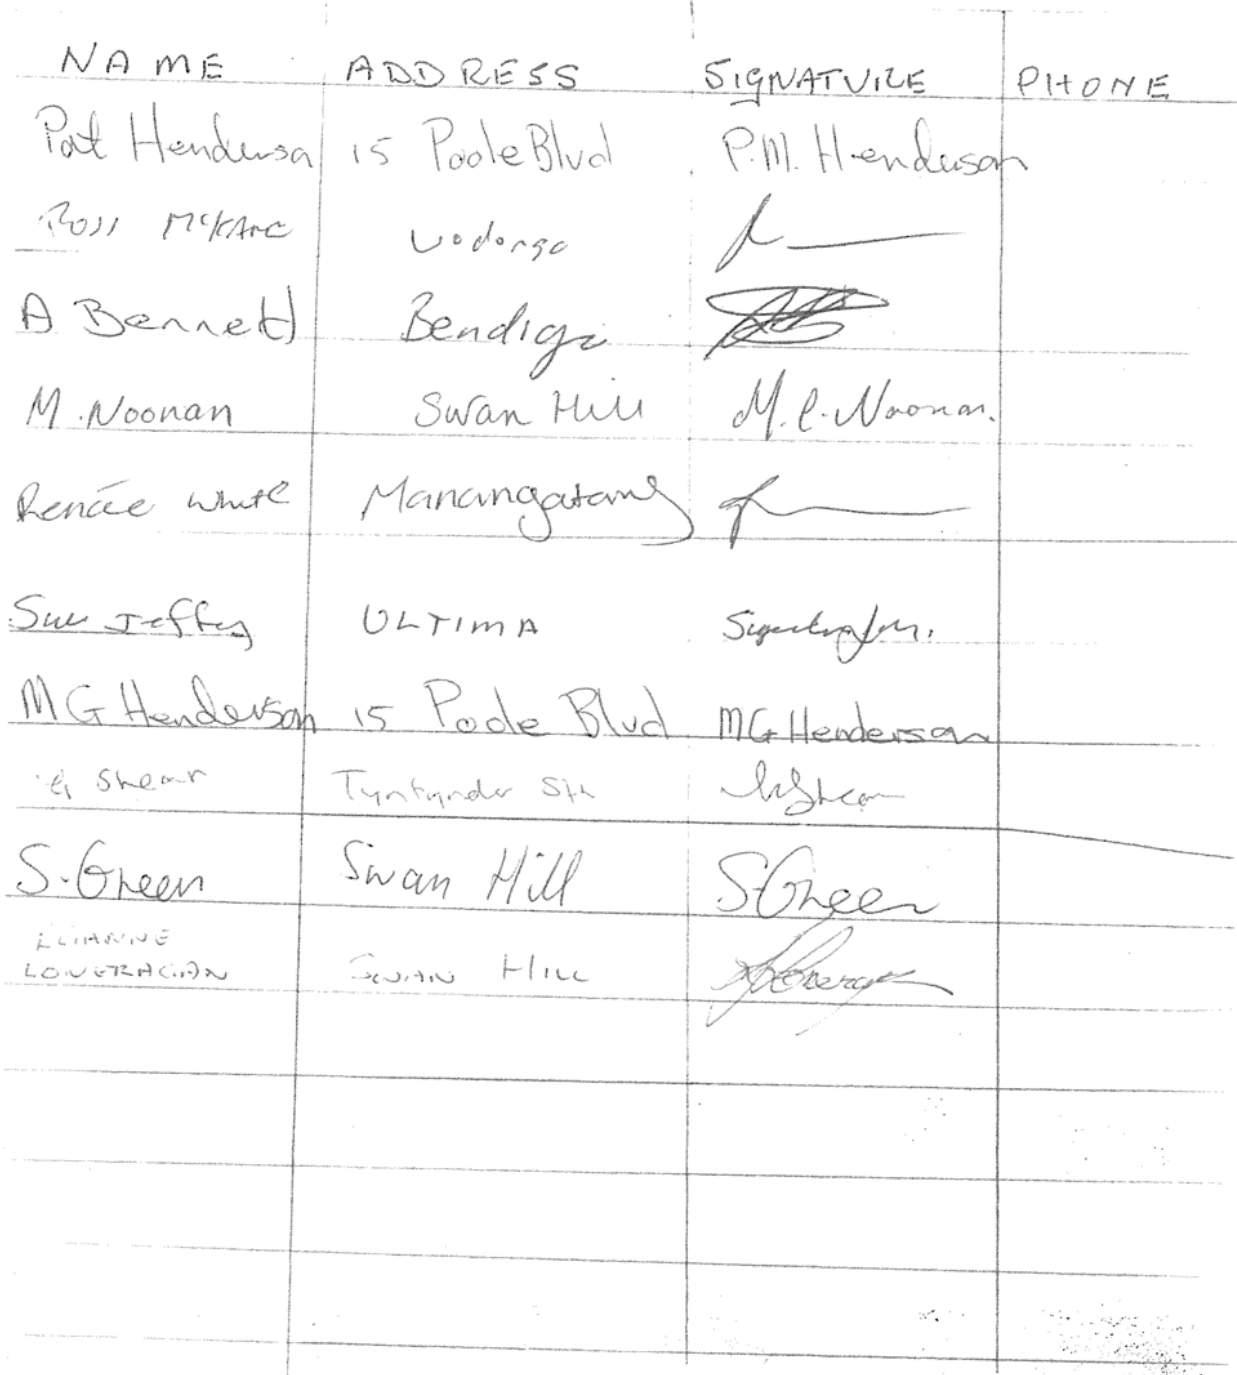 NAME ADDRESS SIGNATURE PHONE
Pat Henderson 15 Poole Blvd P.M. Henderson
Ross Wodonga
A Bennett Bendigo
M. Noonan Swan Hill M. C. Noonan.
Renée White Manangatang
Sue Jeffery ULTIMA
MG Henderson 15 Poole Blvd MG Henderson
Shear Tyntynder Sth
S. Green Swan Hill S Green
LONERAGAN SWAN HILL